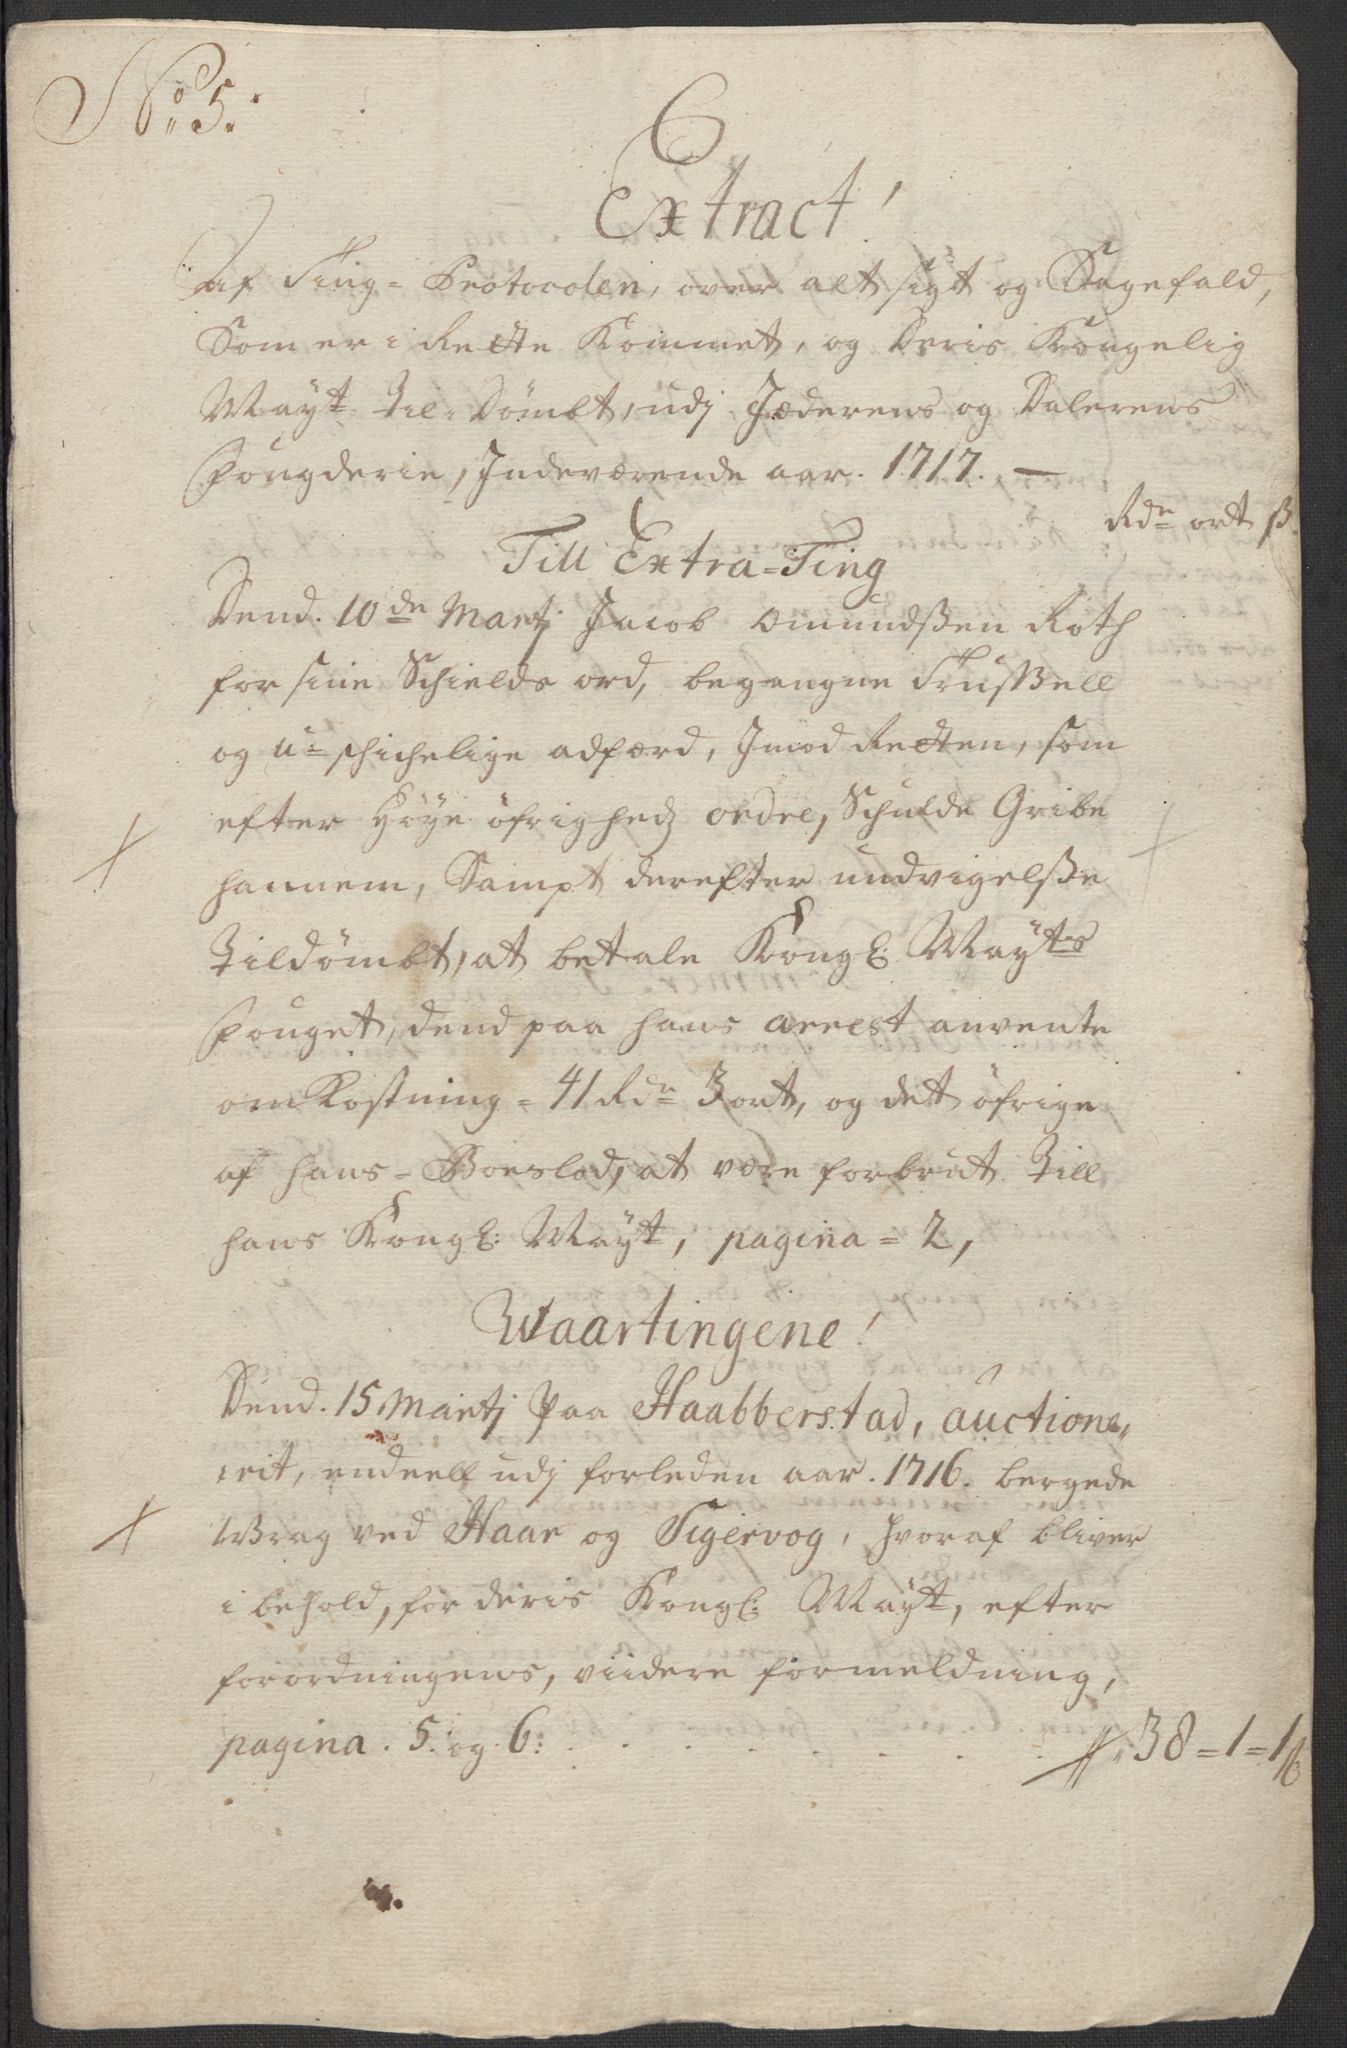 No: 5.
Extract!
Af Ting-Protocolen, over alt sigt og Sagefald,
Som er i Rette Kommet, og Deris Kongelig
Mayt Til-Dömbt, udj Jæderens og Dalerens
Fougderie, Indeværende aar. 1717. —
Rdr ort ß.
Till Extra-Ting
Dend. 10de Martj Jacob Omundßen Röth
for sine Schields ord, begangne Trußell
og u-schichelige adfærd, Imod Retten, som
efter Höye öfrighedz ordre, Schulde Gribe
hannem, Sampt derefter undvigelße
Tildömbt, at betale Kongl: Mayts
Fouget, dend paa hans arrest anvente
omkostning = 41 Rdr 3 ort, og det öfrige
af hans Boeslod, at være forbrut Till
hans Kongl: Mayt, pagina = 2,
Waartingene!
Dend. 15 Martj paa Haabberstad, auctione„
erit, endeell udj forleden aar. 1716. bergede
Wrag ved Haar og Sigervog, hvoraf bliver
i behold, for deris Kongl: Mayt, efter
forordningens, viidere formeldning,
pagina. 5. og. 6: . . . . . . . 38 = 1 = 1ß